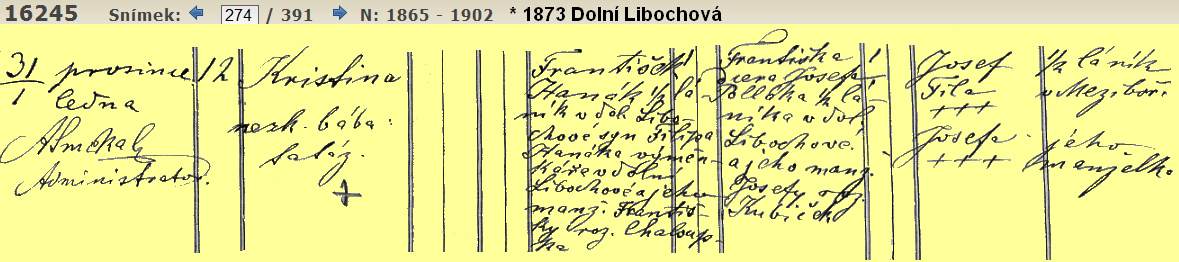 16245 Snímek: 274 / 391 N: 1865 - 1902 * 1873 Dolní Libochová
31/1 prosince
ledna
Administrator.
12
Kristina
nezk. bába:
+
František
Hanák ½ lá-
ník v dol. Libo-
chové syn Filipa
Hanáka výměn-
káře v dolní
Libochové a jeho
manž. Františ-
ky roz. Chaloup-
ka
Františka
dcera Josefa
½ lá-
níka v dol.
Libochové.
a jeho manž.
Josefy roz.
Kubíček
Josef
Fila
+++
Josefa
+++
½ láník
v Meziboří
jeho
manželka